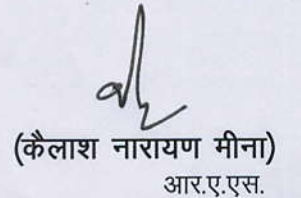 (कैलाश नारायण मीना)
आर.ए.एस.